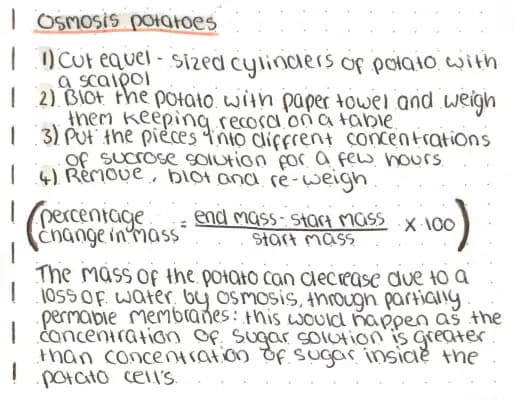 Osmosis potatoes
1) Cut equel-sized cylinders of potato with
a scalpol
2) Blot the potato with paper towel and weigh
them keeping record on a table
3) Put the pieces into diffrent concentrations
of sucrose solution for a few hours
4) Remove, blot and re-weigh
(percentage change in mass = end mass - start mass / start mass × 100)
The mass of the potato can decrease due to a
loss of water by osmosis, through partially
permable membranes: this would happen as the
concentration of sugar solution is greater
than concentration of sugar inside the
potato cell's.